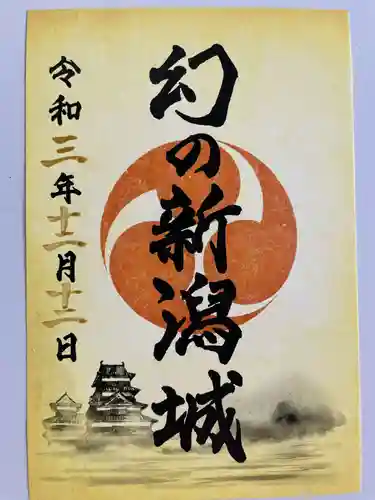 幻の新潟城
令和三年十一月十二日